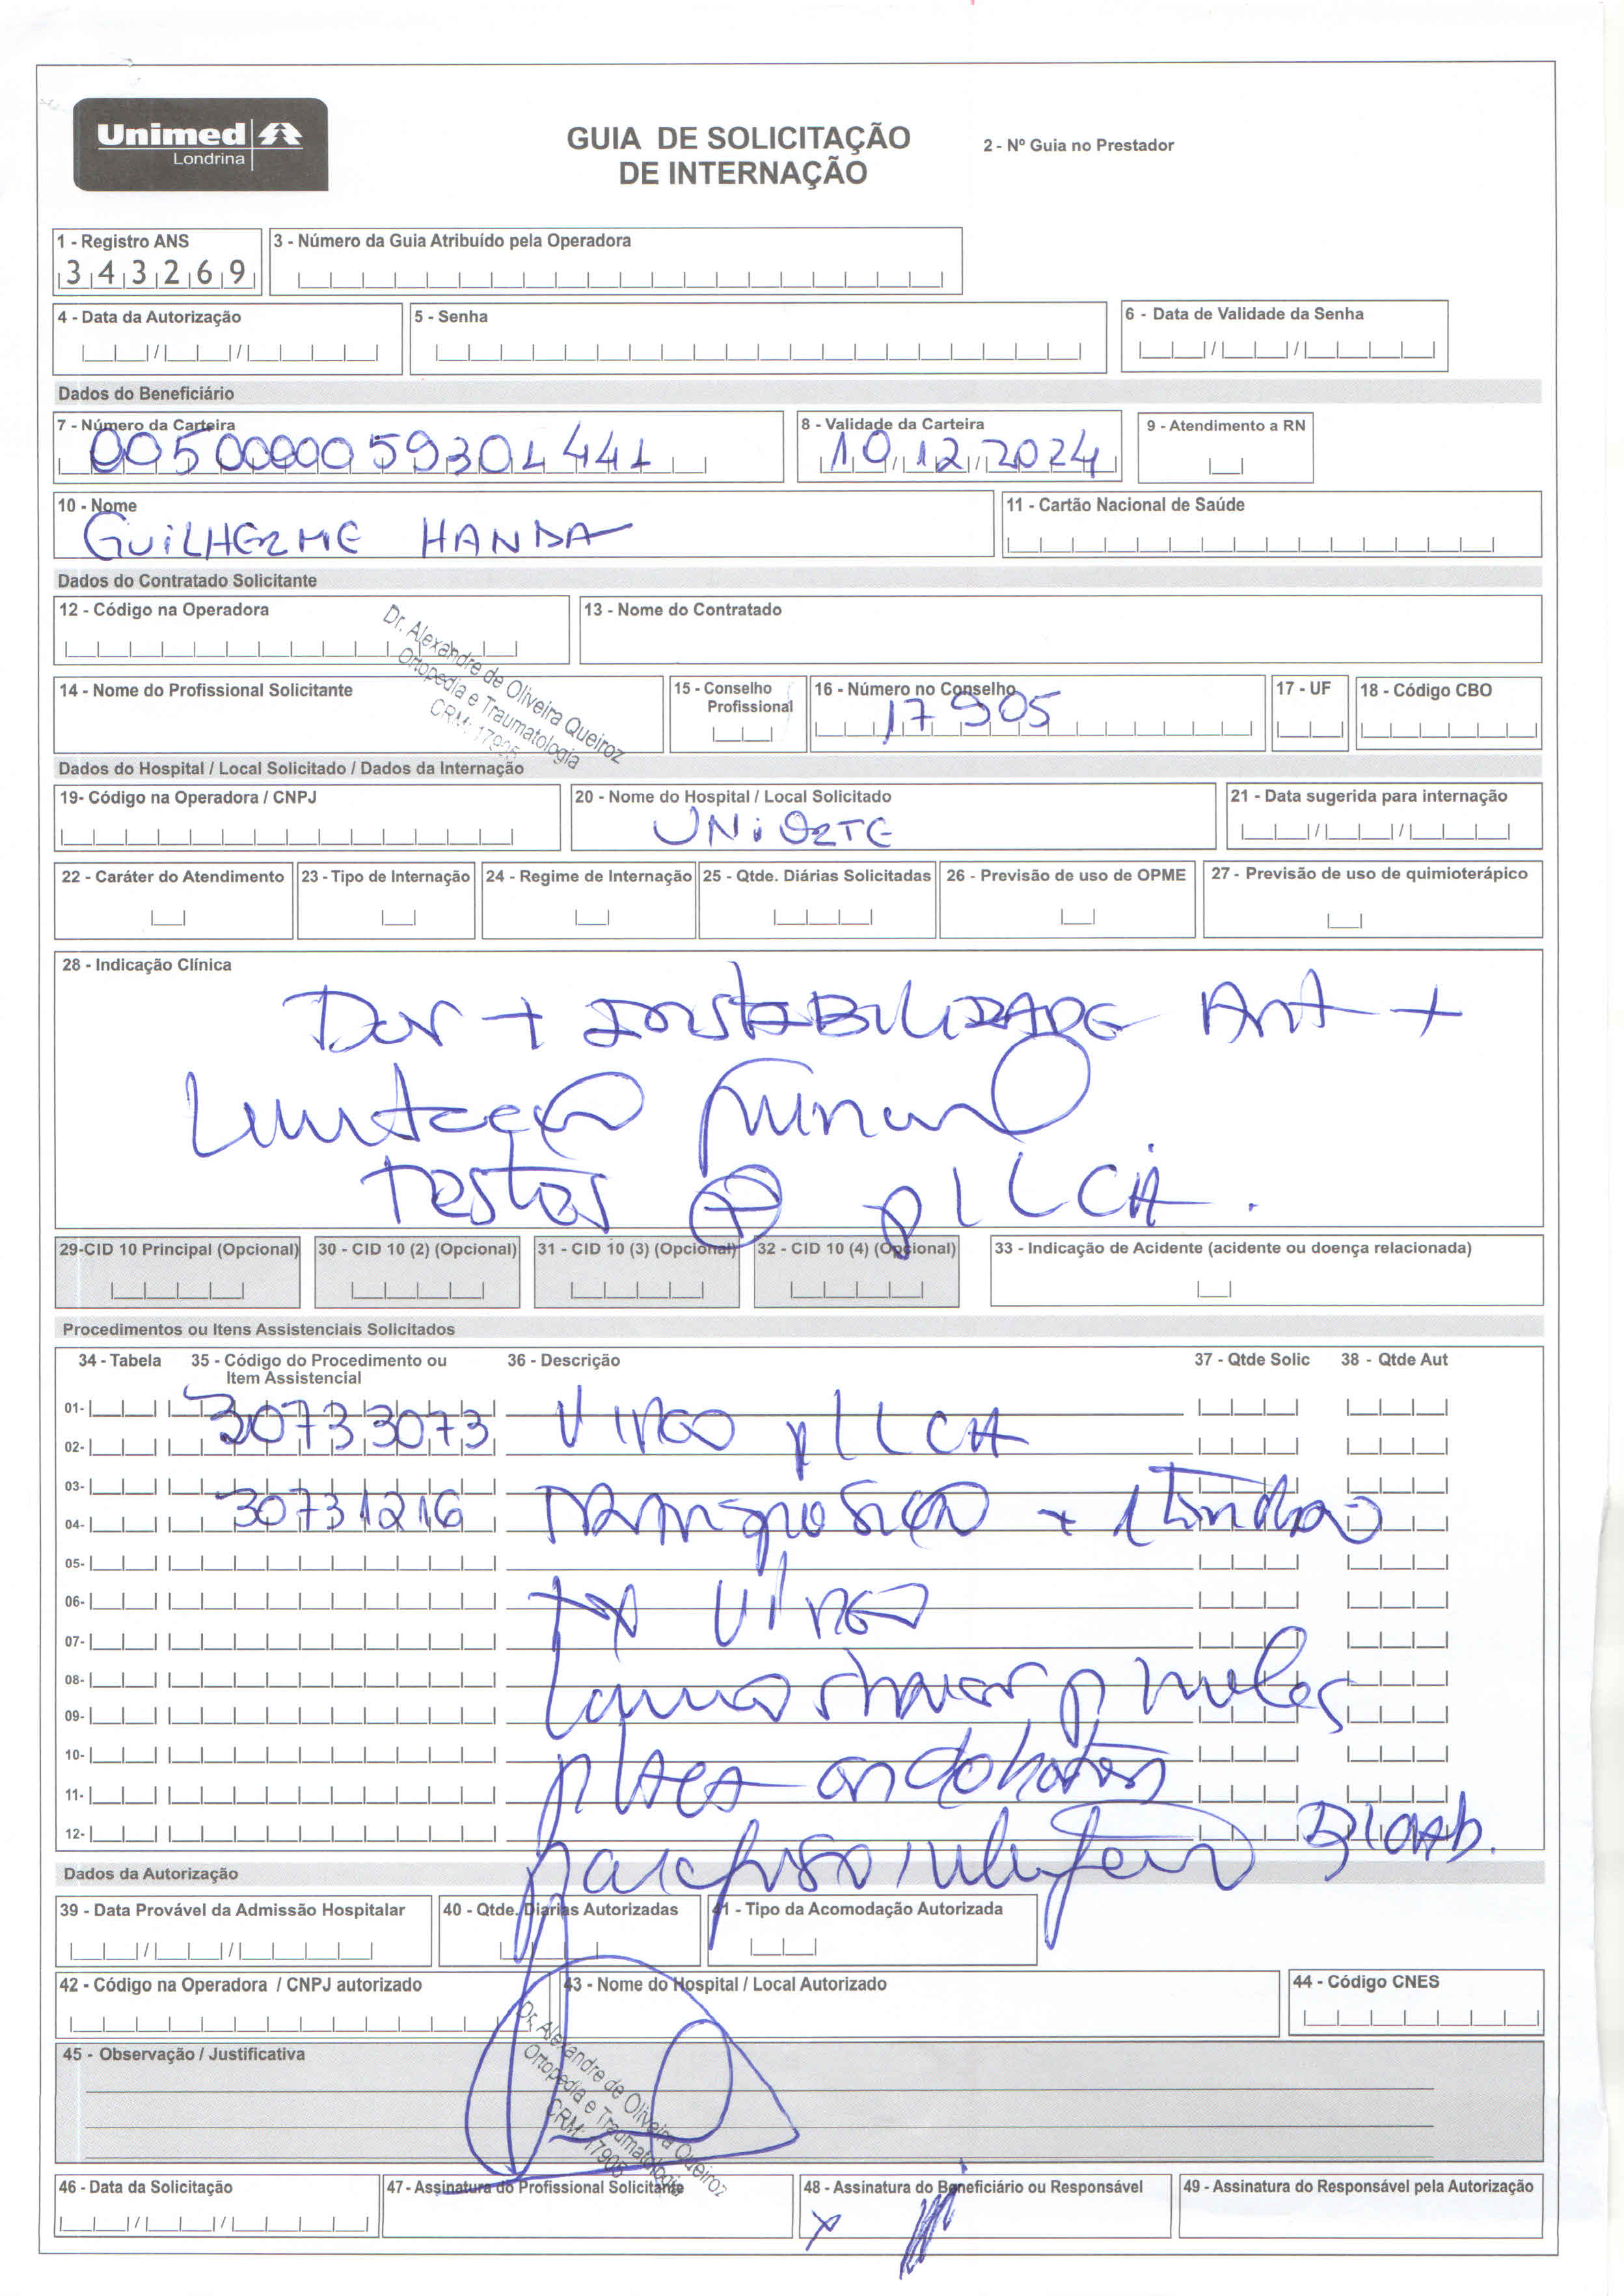 Unimed
Londrina
GUIA DE SOLICITAÇÃO
DE INTERNAÇÃO
2 - Nº Guia no Prestador
1 - Registro ANS
343269
3 - Número da Guia Atribuído pela Operadora
4 - Data da Autorização
5 - Senha
6 - Data de Validade da Senha
Dados do Beneficiário
7 - Número da Carteira
00500000059301441
8 - Validade da Carteira
10/12/2024
9 - Atendimento a RN
10 - Nome
GUILHERME HANDA
11 - Cartão Nacional de Saúde
Dados do Contratado Solicitante
12 - Código na Operadora
13 - Nome do Contratado
Dr. Alexandre de Oliveira Queiroz
Ortopedia e Traumatologia
CRM: 17905
14 - Nome do Profissional Solicitante
15 - Conselho
Profissional
16 - Número no Conselho
17905
17 - UF
18 - Código CBO
Dados do Hospital / Local Solicitado / Dados da Internação
19- Código na Operadora / CNPJ
20 - Nome do Hospital / Local Solicitado
UNIORTE
21 - Data sugerida para internação
22 - Caráter do Atendimento
23 - Tipo de Internação
24 - Regime de Internação
25 - Qtde. Diárias Solicitadas
26 - Previsão de uso de OPME
27 - Previsão de uso de quimioterápico
28 - Indicação Clínica
Dor + INSTABILIDADE Ant +
Limitação
Testes ⊕ p/ LCA.
29-CID 10 Principal (Opcional)
30 - CID 10 (2) (Opcional)
31 - CID 10 (3) (Opcional)
32 - CID 10 (4) (Opcional)
33 - Indicação de Acidente (acidente ou doença relacionada)
Procedimentos ou Itens Assistenciais Solicitados
34 - Tabela
35 - Código do Procedimento ou
Item Assistencial
36 - Descrição
37 - Qtde Solic
38 - Qtde Aut
01-
02-
30733073 VIDEO p/ LCA
03-
04-
30731216 Transposição + 1 tendão
05-
06-
VIDEO
07-
08-
Lamina shaver p
09-
10-
placa
11-
12-
parafuso Bioab.
Dados da Autorização
39 - Data Provável da Admissão Hospitalar
40 - Qtde. Diárias Autorizadas
41 - Tipo da Acomodação Autorizada
42 - Código na Operadora / CNPJ autorizado
43 - Nome do Hospital / Local Autorizado
44 - Código CNES
45 - Observação / Justificativa
Dr. Alexandre de Oliveira Queiroz
Ortopedia e Traumatologia
CRM: 17905
46 - Data da Solicitação
47 - Assinatura do Profissional Solicitante
48 - Assinatura do Beneficiário ou Responsável
x
49 - Assinatura do Responsável pela Autorização